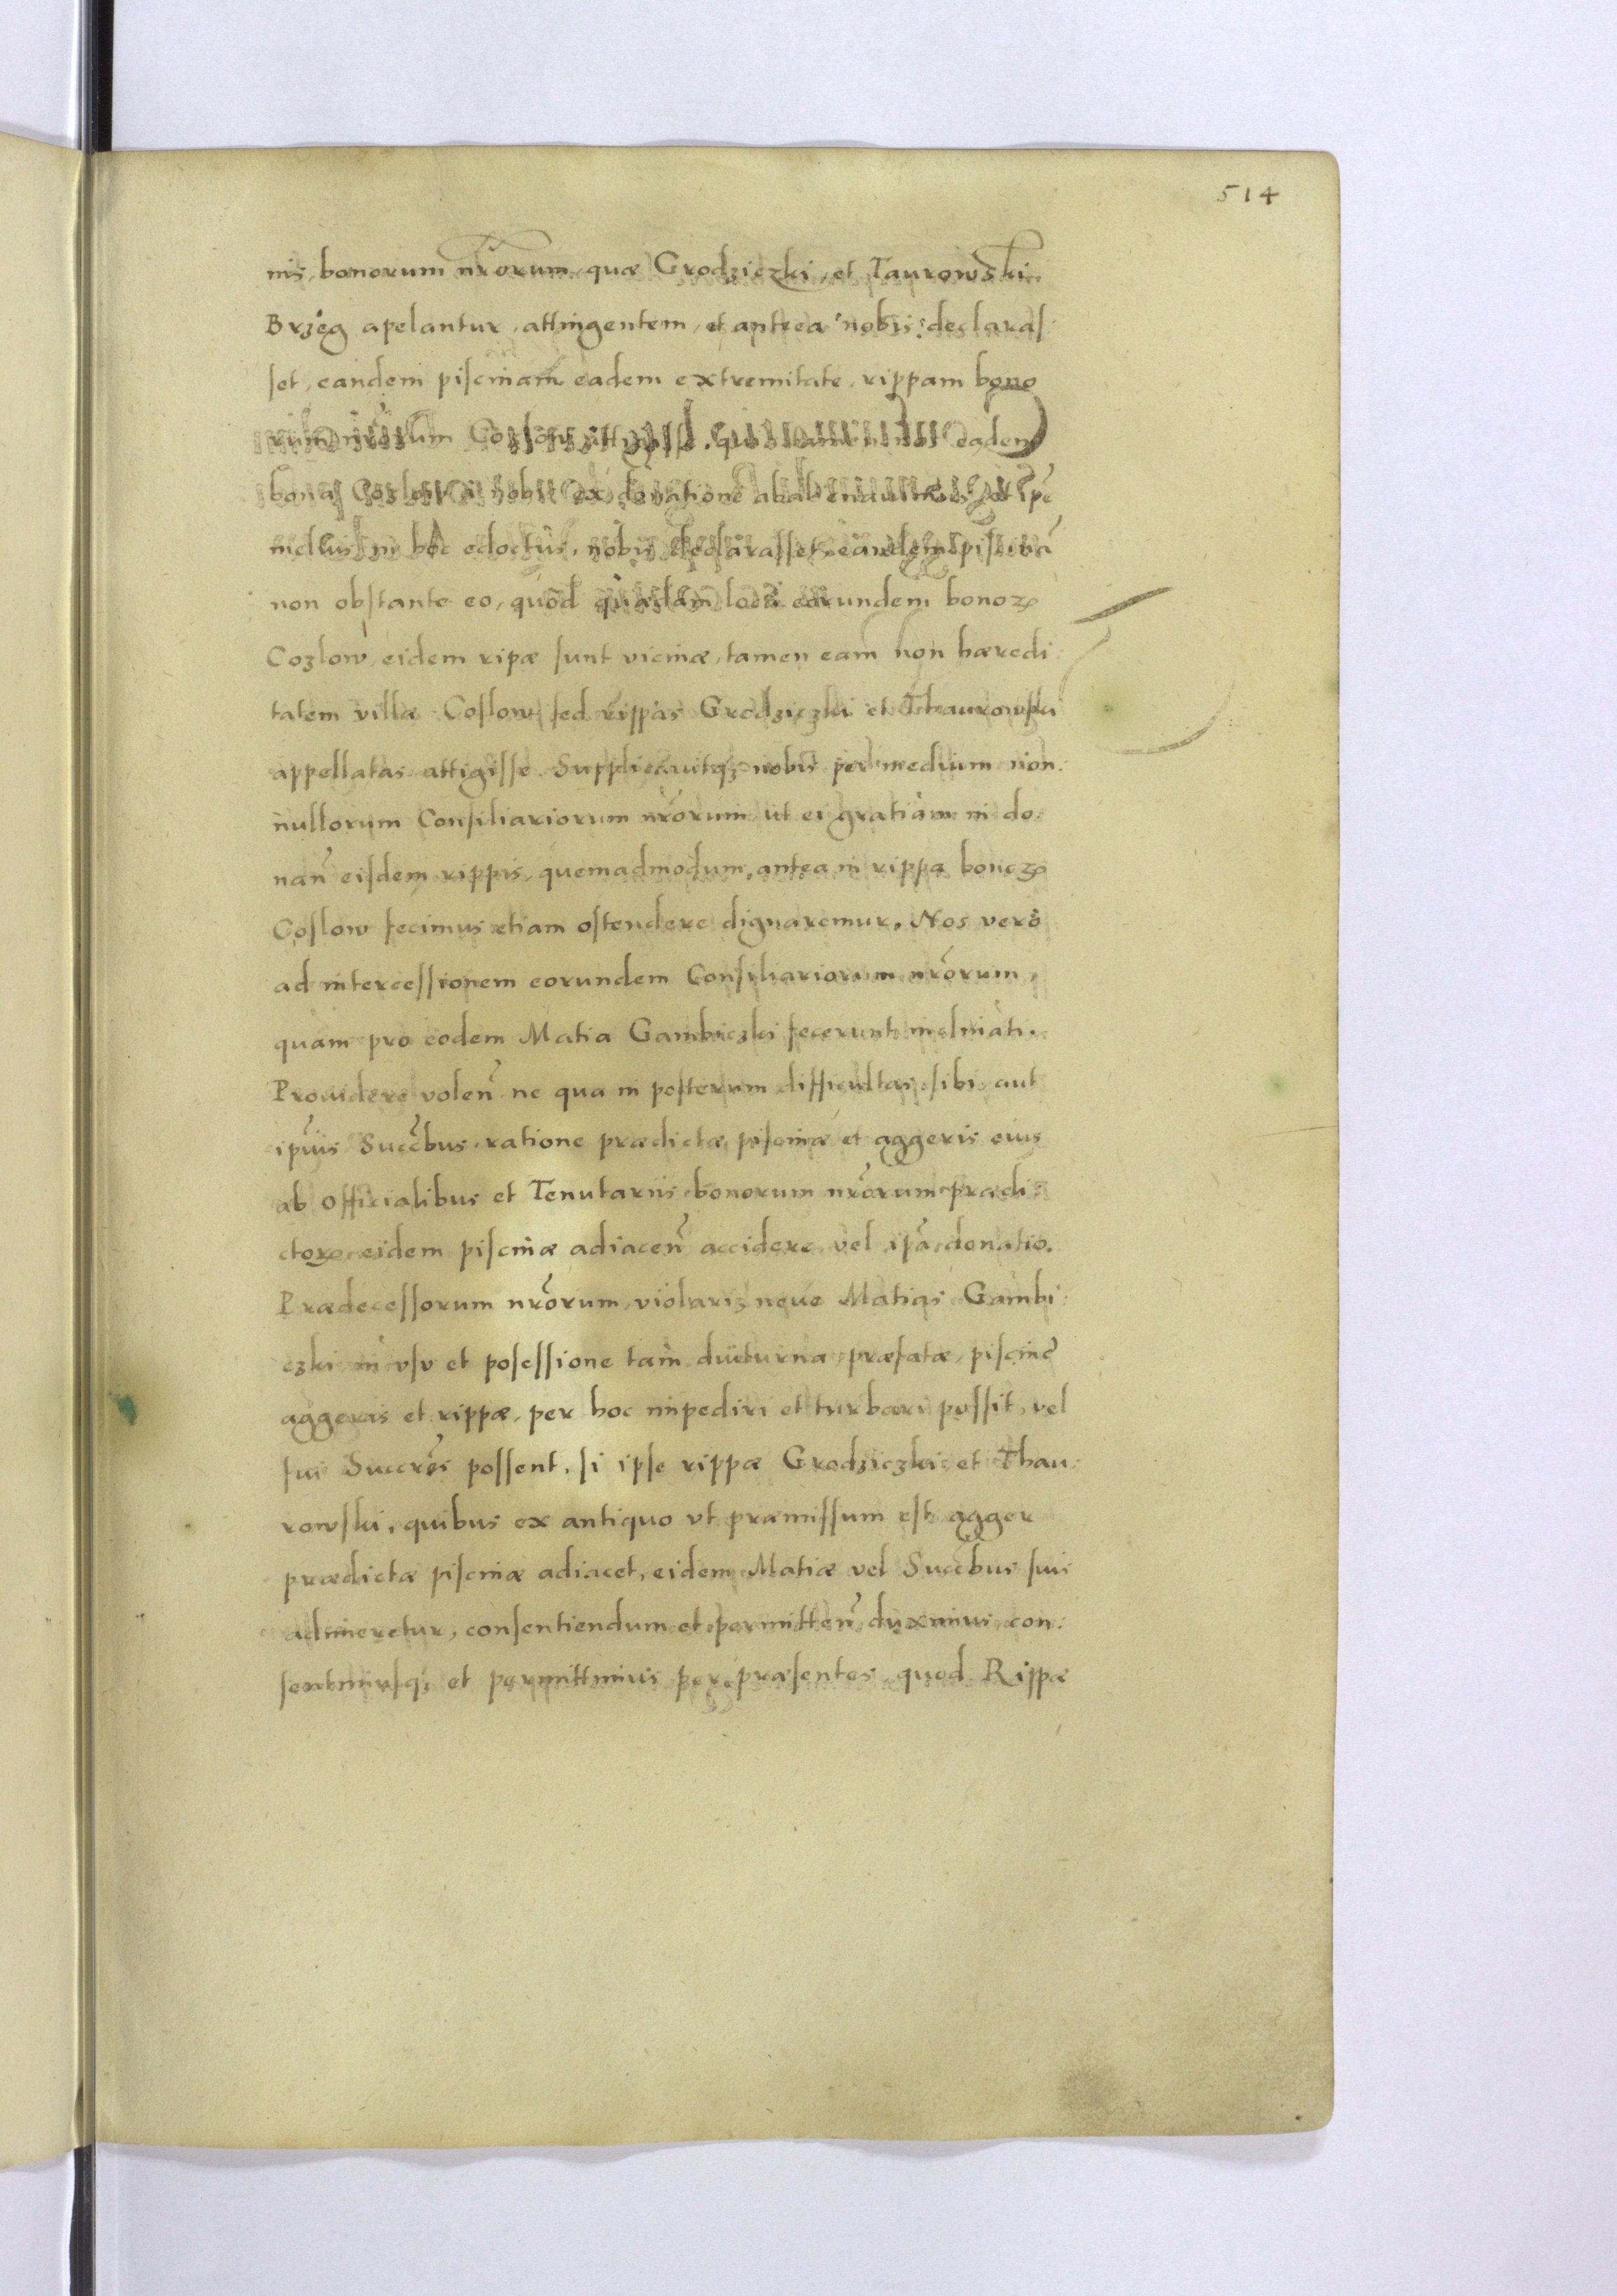 514
nis, bonorum nr̃orum, quæ Grodziczki, et Taurowski
Brzég apelantur, attingentem, et antea nobis declaraſ:
ſet, eandem piſcinam eadem extremitate, rippam bono
rum nr̃orum Cozlow eadem
bona Cozlow a nobis ex donatione et ip̃e
melius in hoc edoctus, nobis declaraſſet, eandem piſcinã
non obſtante eo, quod quædam loca eorundem bonoꝝ
Cozlow, eidem ripæ ſunt vicinæ, tamen eam non hæredi:
tatem villæ Coſlow, ſed rippas Grodziczki et Thaurowſki
appellatas attigiſſe. Supplicauitqꝫ nobis per medium non:
nullorum Conſiliariorum nr̃orum ut ei gratiam in do:
nan̄ eiſdem rippis, quemadmodum, antea in rippa bonoꝝ
Coſlow fecimus etiam oſtendere dignaremur, Nos verò
ad interceſſionem eorundem Conſiliariorum nr̃orum,
quam pro eodem Matia Gambiczki fecerunt inclinati.
Prouidere volen̄ ne qua in poſterum difficultas ſibi aut
ip̃uis Succ̃bus ratione prædictæ piſcinæ et aggeris eius
ab Officialibus et Tenutariis bonorum nr̃orum prædi:
ctoꝝ eidem piſcinæ adiacen̄ accidere, vel ip̃a donatio.
Prædeceſſorum nr̃orum, violari, neue Matias Gambi:
czki in vſu et poſeſſione tam diuturna, præfatæ, piſcinæ
aggeris et rippæ, per hoc impediri et turbari poſſit, vel
ſui Succr̃es poſſent, ſi ipſe rippæ Grodziczki et Thau:
rowſki, quibus ex antiquo vt præmiſſum eſt agger
prædictæ piſcinæ adiacet, eidem Matiæ vel Succ̃bus ſuis
adimeretur, conſentiendum et permitten̄ duximus, con:
ſentimuſqꝫ et permittimus per præſentes, quod Rippæ